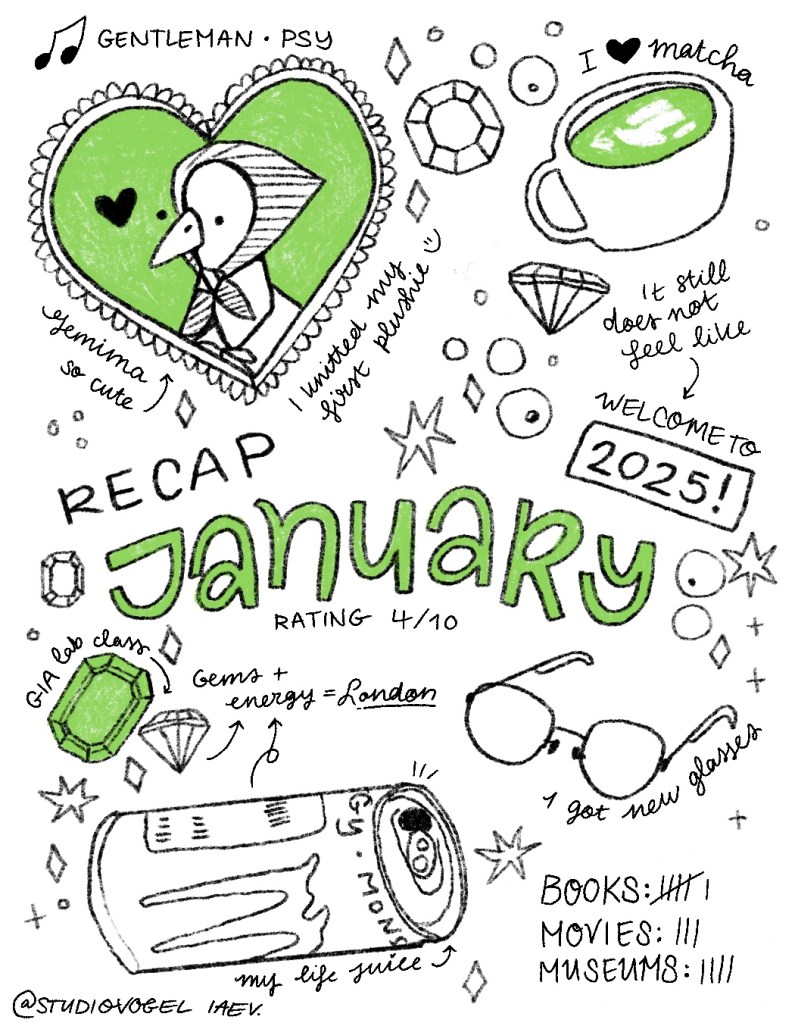 GENTLEMAN · PSY
I ♥ matcha
Jemima
so cute
I knitted my
first plushie
it still
does not
feel like
WELCOME TO
2025!
RECAP
JANUARY
RATING 4/10
GIA lab class
Gems +
energy = London
I got new glasses
gy · MONS
my life juice
BOOKS: 卌 I
MOVIES: III
MUSEUMS: IIII
@STUDIOVOGEL IAEV.